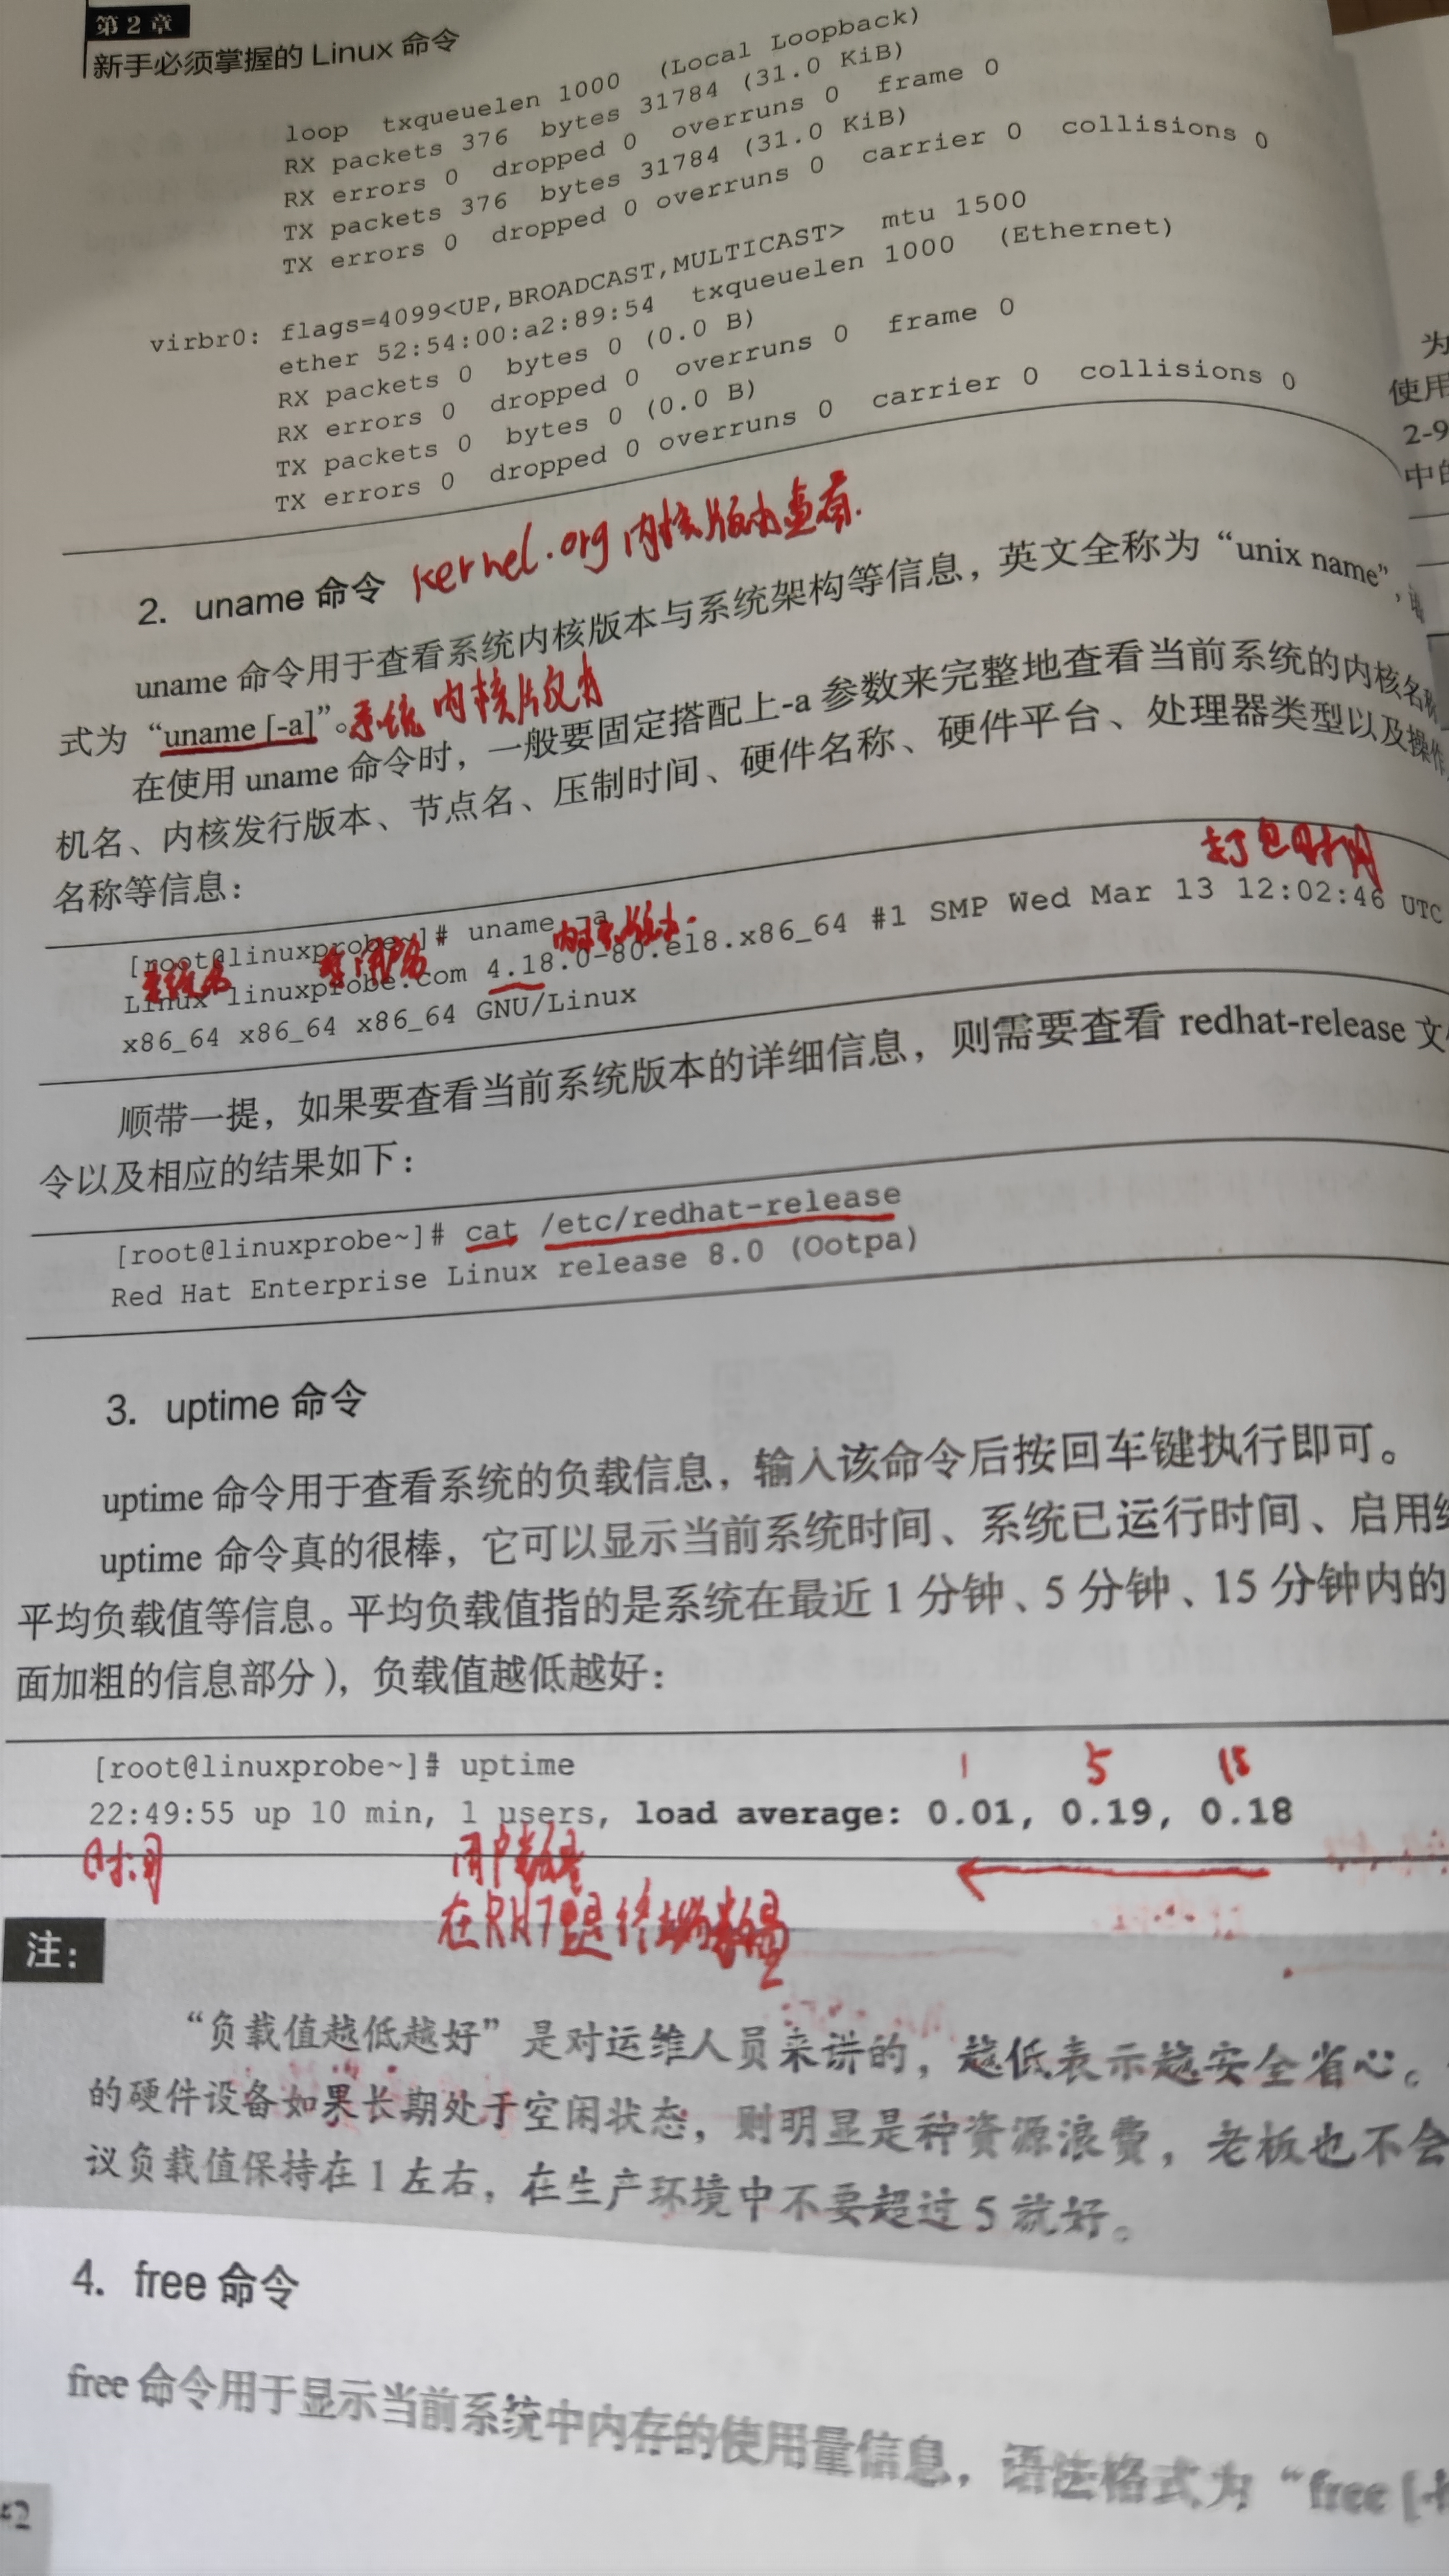 第2章
新手必须掌握的 Linux 命令
loop txqueuelen 1000 (Local Loopback)
RX packets 376 bytes 31784 (31.0 KiB)
RX errors 0 dropped 0 overruns 0 frame 0
TX packets 376 bytes 31784 (31.0 KiB)
TX errors 0 dropped 0 overruns 0 carrier 0 collisions 0
virbr0: flags=4099<UP,BROADCAST,MULTICAST> mtu 1500
ether 52:54:00:a2:89:54 txqueuelen 1000 (Ethernet)
RX packets 0 bytes 0 (0.0 B)
RX errors 0 dropped 0 overruns 0 frame 0
TX packets 0 bytes 0 (0.0 B)
TX errors 0 dropped 0 overruns 0 carrier 0 collisions 0
2. uname 命令 kernel.org 内核版本查看.
uname 命令用于查看系统内核版本与系统架构等信息，英文全称为“unix name”，
式为“uname [-a]”。系统 内核版本
在使用 uname 命令时，一般要固定搭配上-a 参数来完整地查看当前系统的内核名称
机名、内核发行版本、节点名、压制时间、硬件名称、硬件平台、处理器类型以及操作
名称等信息：
打包时间
[root@linuxprobe~]# uname -a
系统名 内核版本
Linux linuxprobe.com 4.18.0-80.el8.x86_64 #1 SMP Wed Mar 13 12:02:46 UTC
x86_64 x86_64 x86_64 GNU/Linux
顺带一提，如果要查看当前系统版本的详细信息，则需要查看 redhat-release 文
令以及相应的结果如下：
[root@linuxprobe~]# cat /etc/redhat-release
Red Hat Enterprise Linux release 8.0 (Ootpa)
3. uptime 命令
uptime 命令用于查看系统的负载信息，输入该命令后按回车键执行即可。
uptime 命令真的很棒，它可以显示当前系统时间、系统已运行时间、启用
平均负载值等信息。平均负载值指的是系统在最近 1 分钟、5 分钟、15 分钟内的
面加粗的信息部分），负载值越低越好：
[root@linuxprobe~]# uptime
1 5 15
22:49:55 up 10 min, 1 users, load average: 0.01, 0.19, 0.18
时间 用户数量
在RH7是终端数量
注：
“负载值越低越好”是对运维人员来讲的，越低表示越安全省心。
的硬件设备如果长期处于空闲状态，则明显是种资源浪费，老板也不会
议负载值保持在 1 左右，在生产环境中不要超过 5 就好。
4. free 命令
free 命令用于显示当前系统中内存的使用量信息，语法格式为“free [-
为
使用
2-9
中的